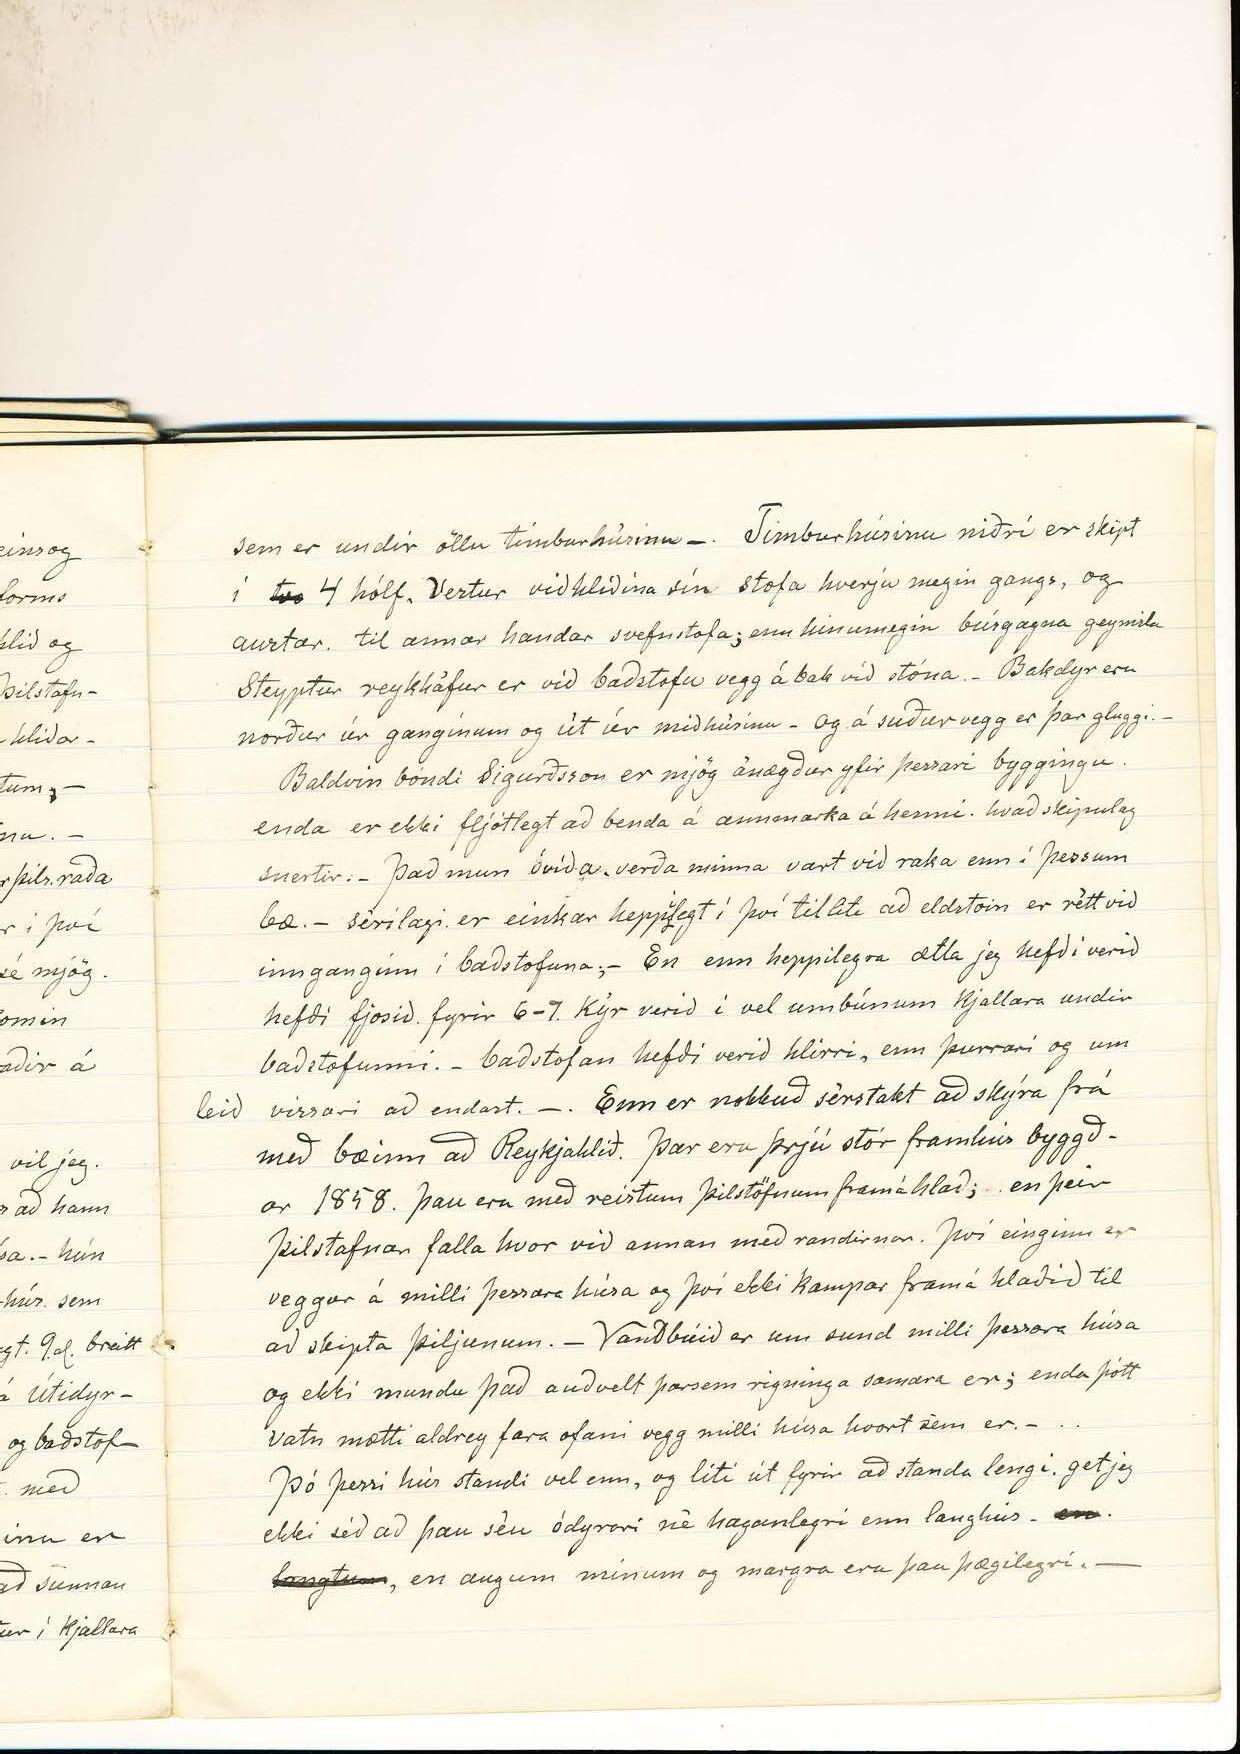 einsog
forms
hlið og
þilstafn-
- hliðar-
tum; -
nu. -
r þils. raða
r i því
sé mjög.
omin
aðir á
vil jeg.
s að hann
sa. - hún
hús. sem
gt. 9. al. breitt
á Útidyr-
og baðstof-
. með
inu er
að sunnan
ur í Kjallara
sem er undir öllu timburhúsinu -. Timburhúsinu niðri er skipt
í tvo 4 hólf. Vestur við hliðina sín stofa hverju megin gangs, og
austar. til annar handar svefnstofa; enn hinumegin búsgagna geymsla
Steyptur reykháfur er við baðstofu vegg á bak við stóna. - Bakdyr eru
norður úr ganginum og út úr miðhúsinu - og á suður vegg er þar gluggi. -
Baldvin bóndi Sigurðsson er mjög ánægður yfir þessari byggingu.
enda er ekki fljótlegt að benda á annmarka á henni. hvað skipulag
snertir: - Það mun óvíða verða minna vart við raka enn í þessum
bæ. - sérílagi er einkar heppilegt í því tilliti að eldstoin er rétt við
innganginn í baðstofuna; - En enn heppilegra ætla jeg hefði verið
hefði fjosið. fyrir 6-7. Kýr verið í vel umbúnum Kjallara undir
baðstofunni. - baðstofan hefði verið hlírri, enn þurrari og um
leið vissari að endast. -. Enn er nokkuð sérstakt að skýra frá
með bæinn að Reykjahlið. Þar eru þrjú stór framhús byggð-
ar 1858. þau eru með reistum þilstöfnum framá hlað; en þeir
þilstafnar falla hvor við annan með randirnar. Því einginn er
veggur á milli þessara húsa og því ekki Kampar framá hlaðið til
að skipta þiljunum. - Vandbúið er um sund milli þessara húsa
og ekki mundu það auðvelt þarsem rigninga samara er; enda þótt
vatn mætti aldrey fara ofani vegg milli húsa hvort sem er. - . .
Þó þessi hús standi vel enn, og líti út fyrir að standa lengi. get jeg
ekki séð að þau séu ódyrari né haganlegri enn langhús - en.
langtum, en augum minum og margra eru þau þægilegri. -